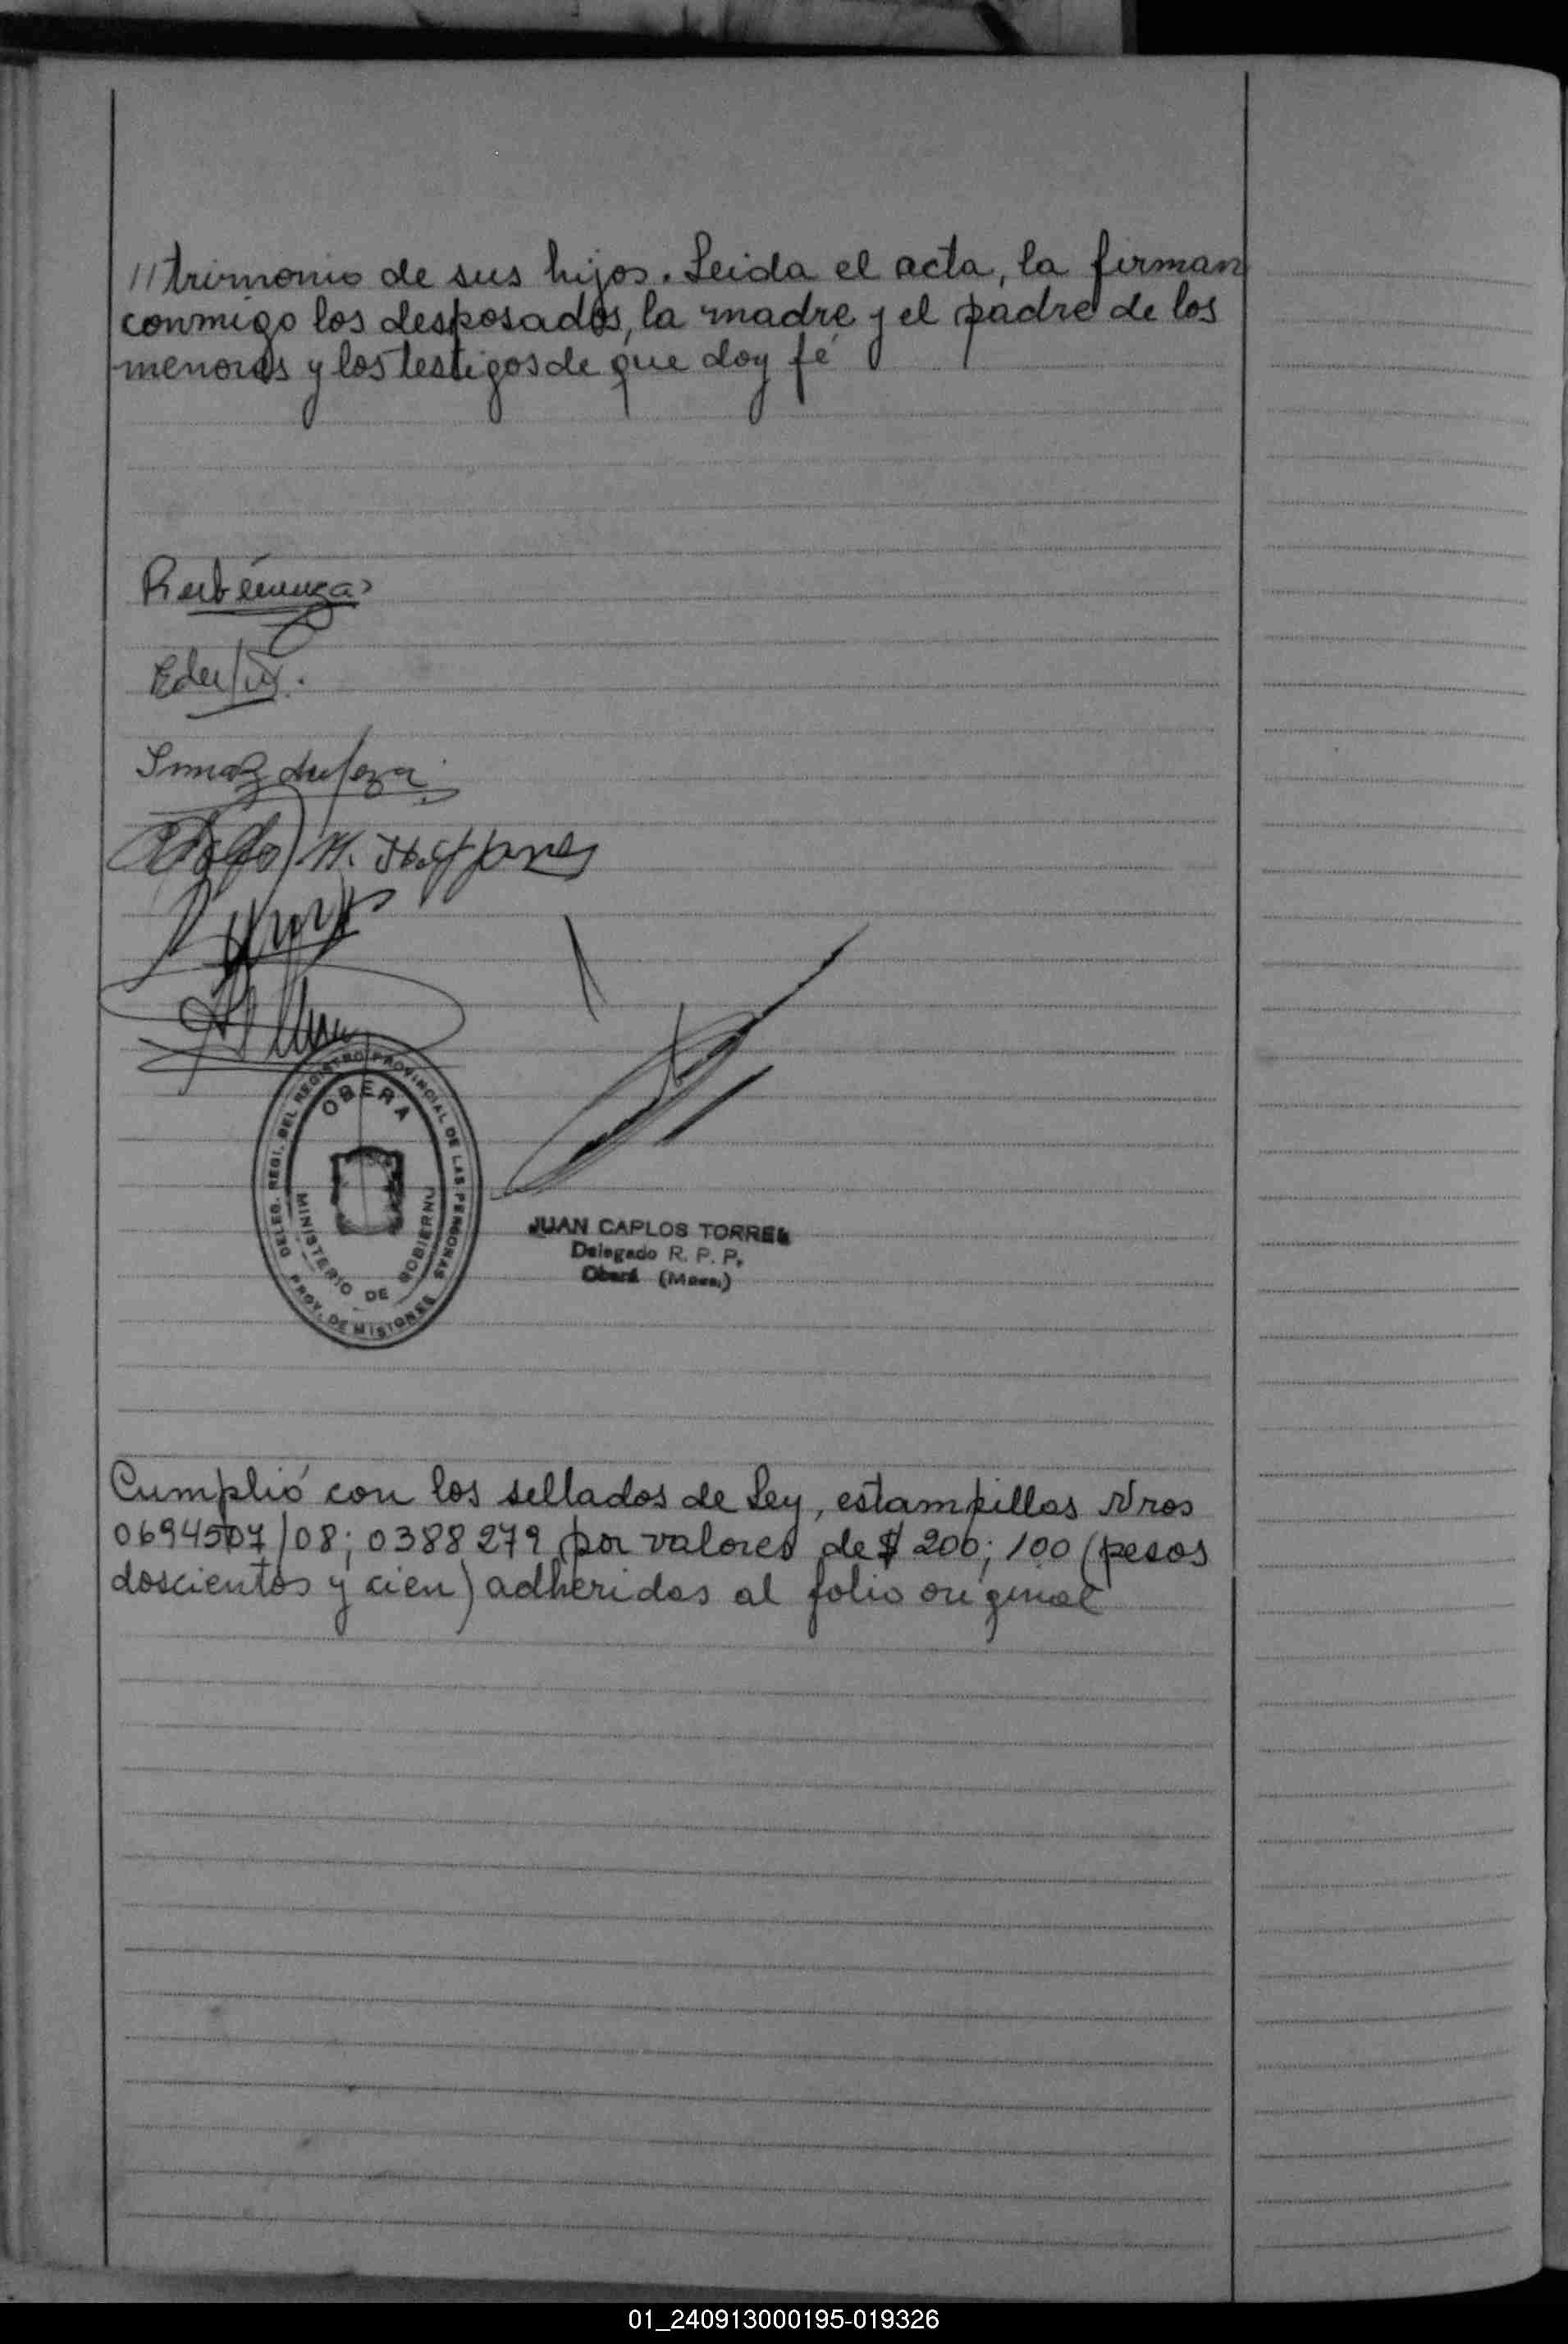 //trimonio de sus hijos. Leida el acta, la firman
conmigo los desposados, la madre y el padre de los
menores y los testigos de que doy fé
OBERA
DELEG. REGI. DEL REGISTRO PROVINCIAL DE LAS PERSONAS
MINISTERIO DE GOBIERNO
PROV. DE MISIONES
JUAN CARLOS TORRES
Delegado R. P. P.
Oberá (Mnes.)
Cumplió con los sellados de Ley, estampillas Nros
0694507/08; 0388279 por valores de $ 200; 100 (pesos
doscientos y cien) adheridas al folio original
01_240913000195-019326